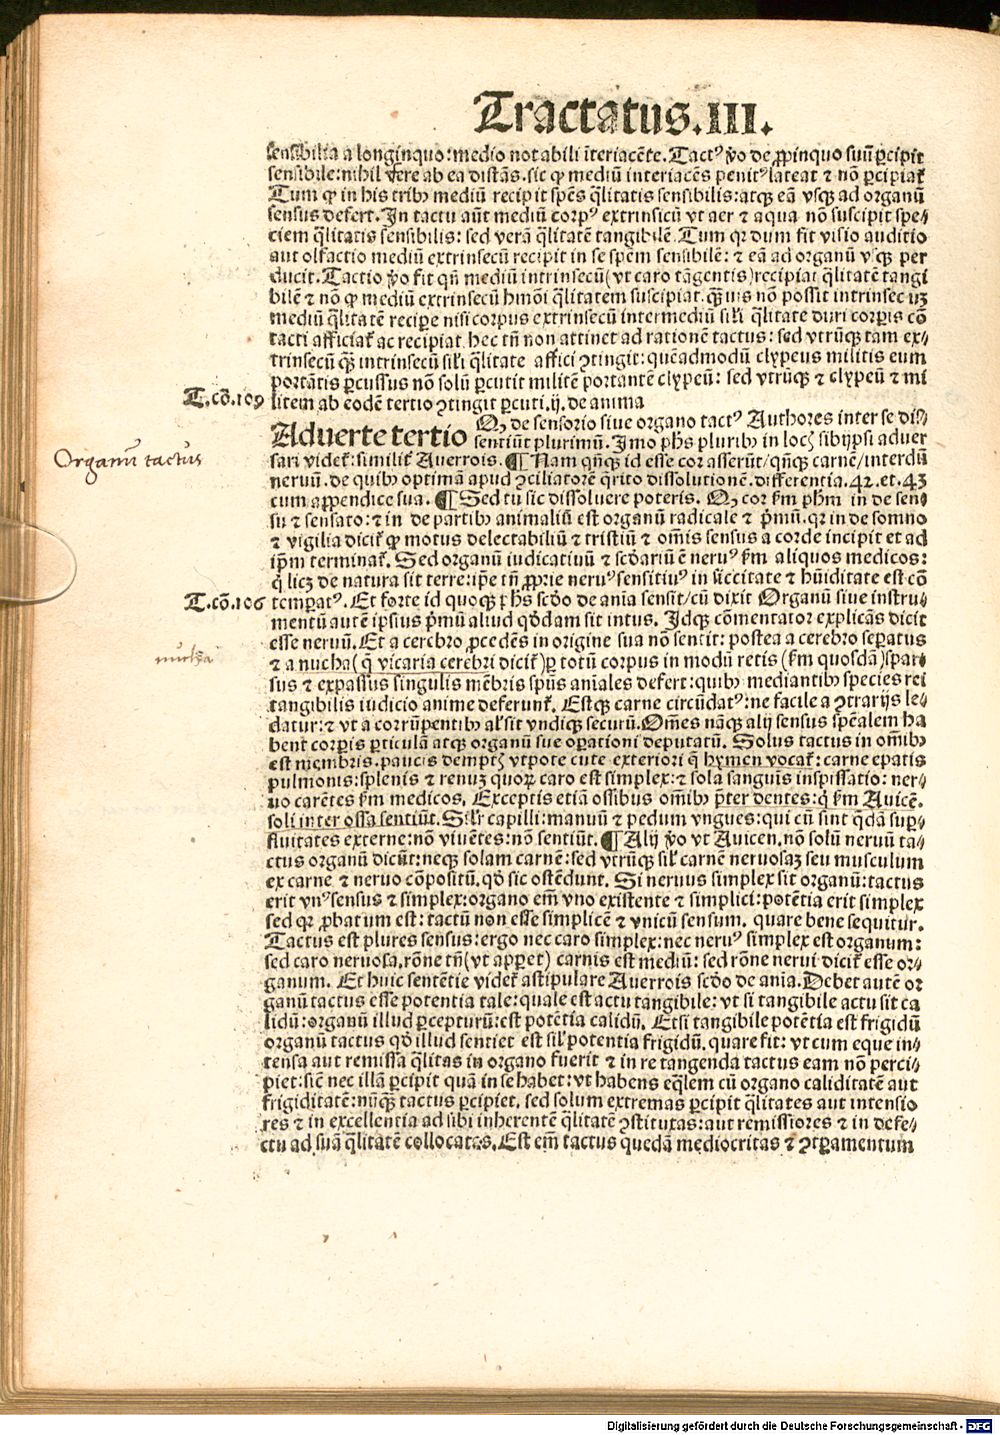 Tractatus.III.
sensibilia a longinquo:medio notabili īteriacēte.Tactꝰ ꝟo de ꝓpinquo suū ꝑcipit
sensibile:nihil fere ab ea distās.sic ꝙ mediū interiacēs penitꝰ lateat ⁊ nō ꝑcipiat᷑
Tum ꝙ in his tribꝫ mediū recipit spēs q̄litatis sensibilis:atqꝫ eā vsqꝫ ad organū
sensus defert.In tactu aūt mediū corpꝰ extrinsicū vt aer ⁊ aqua nō suscipit spe⸗
ciem q̄litatis sensibilis: sed verā q̄litatē tangibilē.Tum qꝛ dum fit visio auditio
aut olfactio mediū extrinsecū recipit in se spēm sensibilē: ⁊ eā ad organū vsqꝫ per
ducit.Tactio ꝟo fit qn̄ mediū intrinsecū(vt caro tāgentis)recipiat q̄litatē tangi
bilē ⁊ nō ꝙ mediū extrinsecū hmōi q̄litatem suscipiat.qꝙ̄uis nō possit intrinsecuꝫ
mediū q̄litatē recipe nisi corpus extrinsecū intermediū sil'i q̄litate duri corꝑis cō
tacti afficiat᷑ ac recipiat.hec tn̄ non attinet ad rationē tactus: sed vtrūqꝫ tam ex⸗
trinsecū qꝙ̄ intrinsecū sil'i q̄litate affici ꝯtingit: quēadmodū clypeus militis eum
portātis ꝑcussus nō solū ꝑcutit militē portantē clypeū: sed vtrūqꝫ ⁊ clypeū ⁊ mi
T.cō.109 litem ab eodē tertio ꝯtingit ꝑcuti.ij.de anima
Aduerte tertio Qꝫ de sensorio siue organo tactꝰ Authores inter se dis⸗
sentiūt plurimū.Imo phs pluribꝫ in locꝭ sibijpsi aduer
Organū tactus
sari videt᷑:similit᷑ Auerrois.¶Nam qn̄qꝫ id esse cor asserūt/qn̄qꝫ carnē/interdū
neruū.de quibꝫ optimā apud ꝯciliatorē q̄rito dissolutionē.differentia.42.et.43
cum appendice sua. ¶Sed tu sic dissoluere poteris. Qꝫ cor ẜm phm in de sen⸗
su ⁊ sensato:⁊ in de partibꝫ animaliū est organū radicale ⁊ p̄mū.qꝛ in de somno
⁊ vigilia dicit᷑ ꝙ motus delectabiliū ⁊ tristiū ⁊ om̄is sensus a corde incipit et ad
ip̄m terminat᷑. Sed organū iudicatiuū ⁊ scd̄ariū ē neruꝰ ẜm aliquos medicos:
q̄ licꝫ de natura sit terre:ip̄e tn̄ ꝓprie neruꝰ sensitiuꝰ in siccitate ⁊ hūiditate est cō
T.cō.106 temꝑatꝰ. Et forte id quoqꝫ phs scd̄o de anīa sensit/cū dixit Organū siue instru⸗
mentū autē ipsius p̄mū aliud qd̄dam sit intus. Idqꝫ cōmentator explicās dicit
esse neruū. Et a cerebro ꝓcedēs in origine sua nō sentit: postea a cerebro seꝑatus
nucha
⁊ a nucha(q̄ vicaria cerebri dicit᷑)ꝑ totū corpus in modū retis (ẜm quosdā)spar⸗
sus ⁊ expassus singulis mēbris spūs aniales defert:quibꝫ mediantibꝫ species rei
tangibilis iudicio anime deferunt᷑. Estqꝫ carne circūdatꝰ:ne facile a ꝯtrarijs le⸗
datur:⁊ vt a corrūpentibꝫ al'sit vndiqꝫ securū.Om̄es nāqꝫ alij sensus spēalem ha
bent corꝑis ꝑticulā atqꝫ organū sue oꝑationi deputatū. Solus tactus in om̄ibꝫ
est membris.paucis demptꝭ vtpote cute exteriori q̄ hymen vocat᷑: carne epatis
pulmonis:splenis ⁊ renuꝫ quoꝝ caro est simplex:⁊ sola sanguīs inspissatio: ner⸗
uo carētes ẜm medicos. Exceptis etiā ossibus om̄ibꝫ p̄ter dentes:q̄ ẜm Auicē.
soli inter ossa sentiūt.Sil'r capilli:manuū ⁊ pedum vngues:qui cū sint q̄dā suꝑ⸗
fluitates externe:nō viuētes:nō sentiūt.¶Alij ꝟo vt Auicen.nō solū neruū ta⸗
ctus organū dicūt:neqꝫ solam carnē:sed vtrūqꝫ sil' carnē neruosaꝫ seu musculum
ex carne ⁊ neruo cōpositū.qd̄ sic ostēdunt. Si neruus simplex sit organū:tactus
erit vnꝰ sensus ⁊ simplex:organo em̄ vno existente ⁊ simplici:potētia erit simplex
sed qꝛ ꝓbatum est: tactū non esse simplicē ⁊ vnicū sensum. quare bene sequitur.
Tactus est plures sensus:ergo nec caro simplex:nec neruꝰ simplex est organum:
sed caro neruosa.rōne tn̄(vt apparet) carnis est mediū: sed rōne nerui dicit᷑ esse or⸗
ganum. Et huic sentētie videt᷑ astipulare Auerrois scd̄o de anīa.Debet autē or
ganū tactus esse potentia tale:quale est actu tangibile: vt si tangibile actu sit ca
lidū:organū illud ꝑcepturū:est potētia calidū. Etsi tangibile potētia est frigidū
organū tactus qd̄ illud sentiet est sil' potentia frigidū.quare fit: vt cum eque in⸗
tensa aut remissa q̄litas in organo fuerit ⁊ in re tangenda tactus eam nō perci⸗
piet:sicut nec illā ꝑcipit quā in se habet:vt habens eq̄lem cū organo caliditatē aut
frigiditatē:nūqꝙ̄ tactus ꝑcipiet. sed solum extremas ꝑcipit q̄litates aut intensio
res ⁊ in excellentia ad sibi inherentē q̄litatē ꝯstitutas:aut remissiores ⁊ in defe⸗
ctu ad suā q̄litatē collocatas.Est em̄ tactus quedā mediocritas ⁊ ꝯtꝑamentum
Digitalisierung gefördert durch die Deutsche Forschungsgemeinschaft - DFG